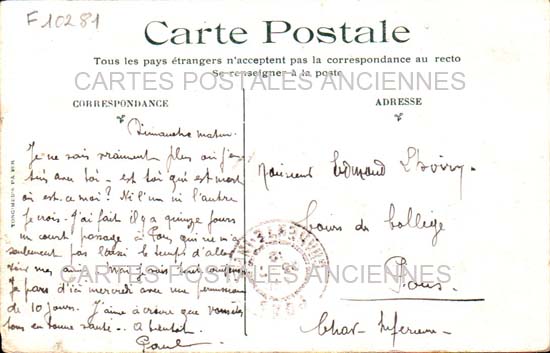 F10281
Carte Postale
Tous les pays étrangers n'acceptent pas la correspondance au recto
Se renseigner à la poste
CARTES POSTALES ANCIENNES
CORRESPONDANCE
ADRESSE
Dimanche matin.
Je ne sais vraiment plus où j'en
suis avec toi - est toi qui est mort
où est-ce moi? Ni l'un ni l'autre
je crois. J'ai fait il y a quinze jours
un court passage à Pons qui ne m'a
seulement pas laissé le temps d'aller
voir mes amis
Je pars d'ici mercredi avec une permission
de 10 jours. J'aime à croire que vous êtes
tous en bonne santé - A bientôt.
Paul
Monsieur Edmond
Cours du Collège
Pons
Char. Inférieure
CARTES POSTALES ANCIENNES